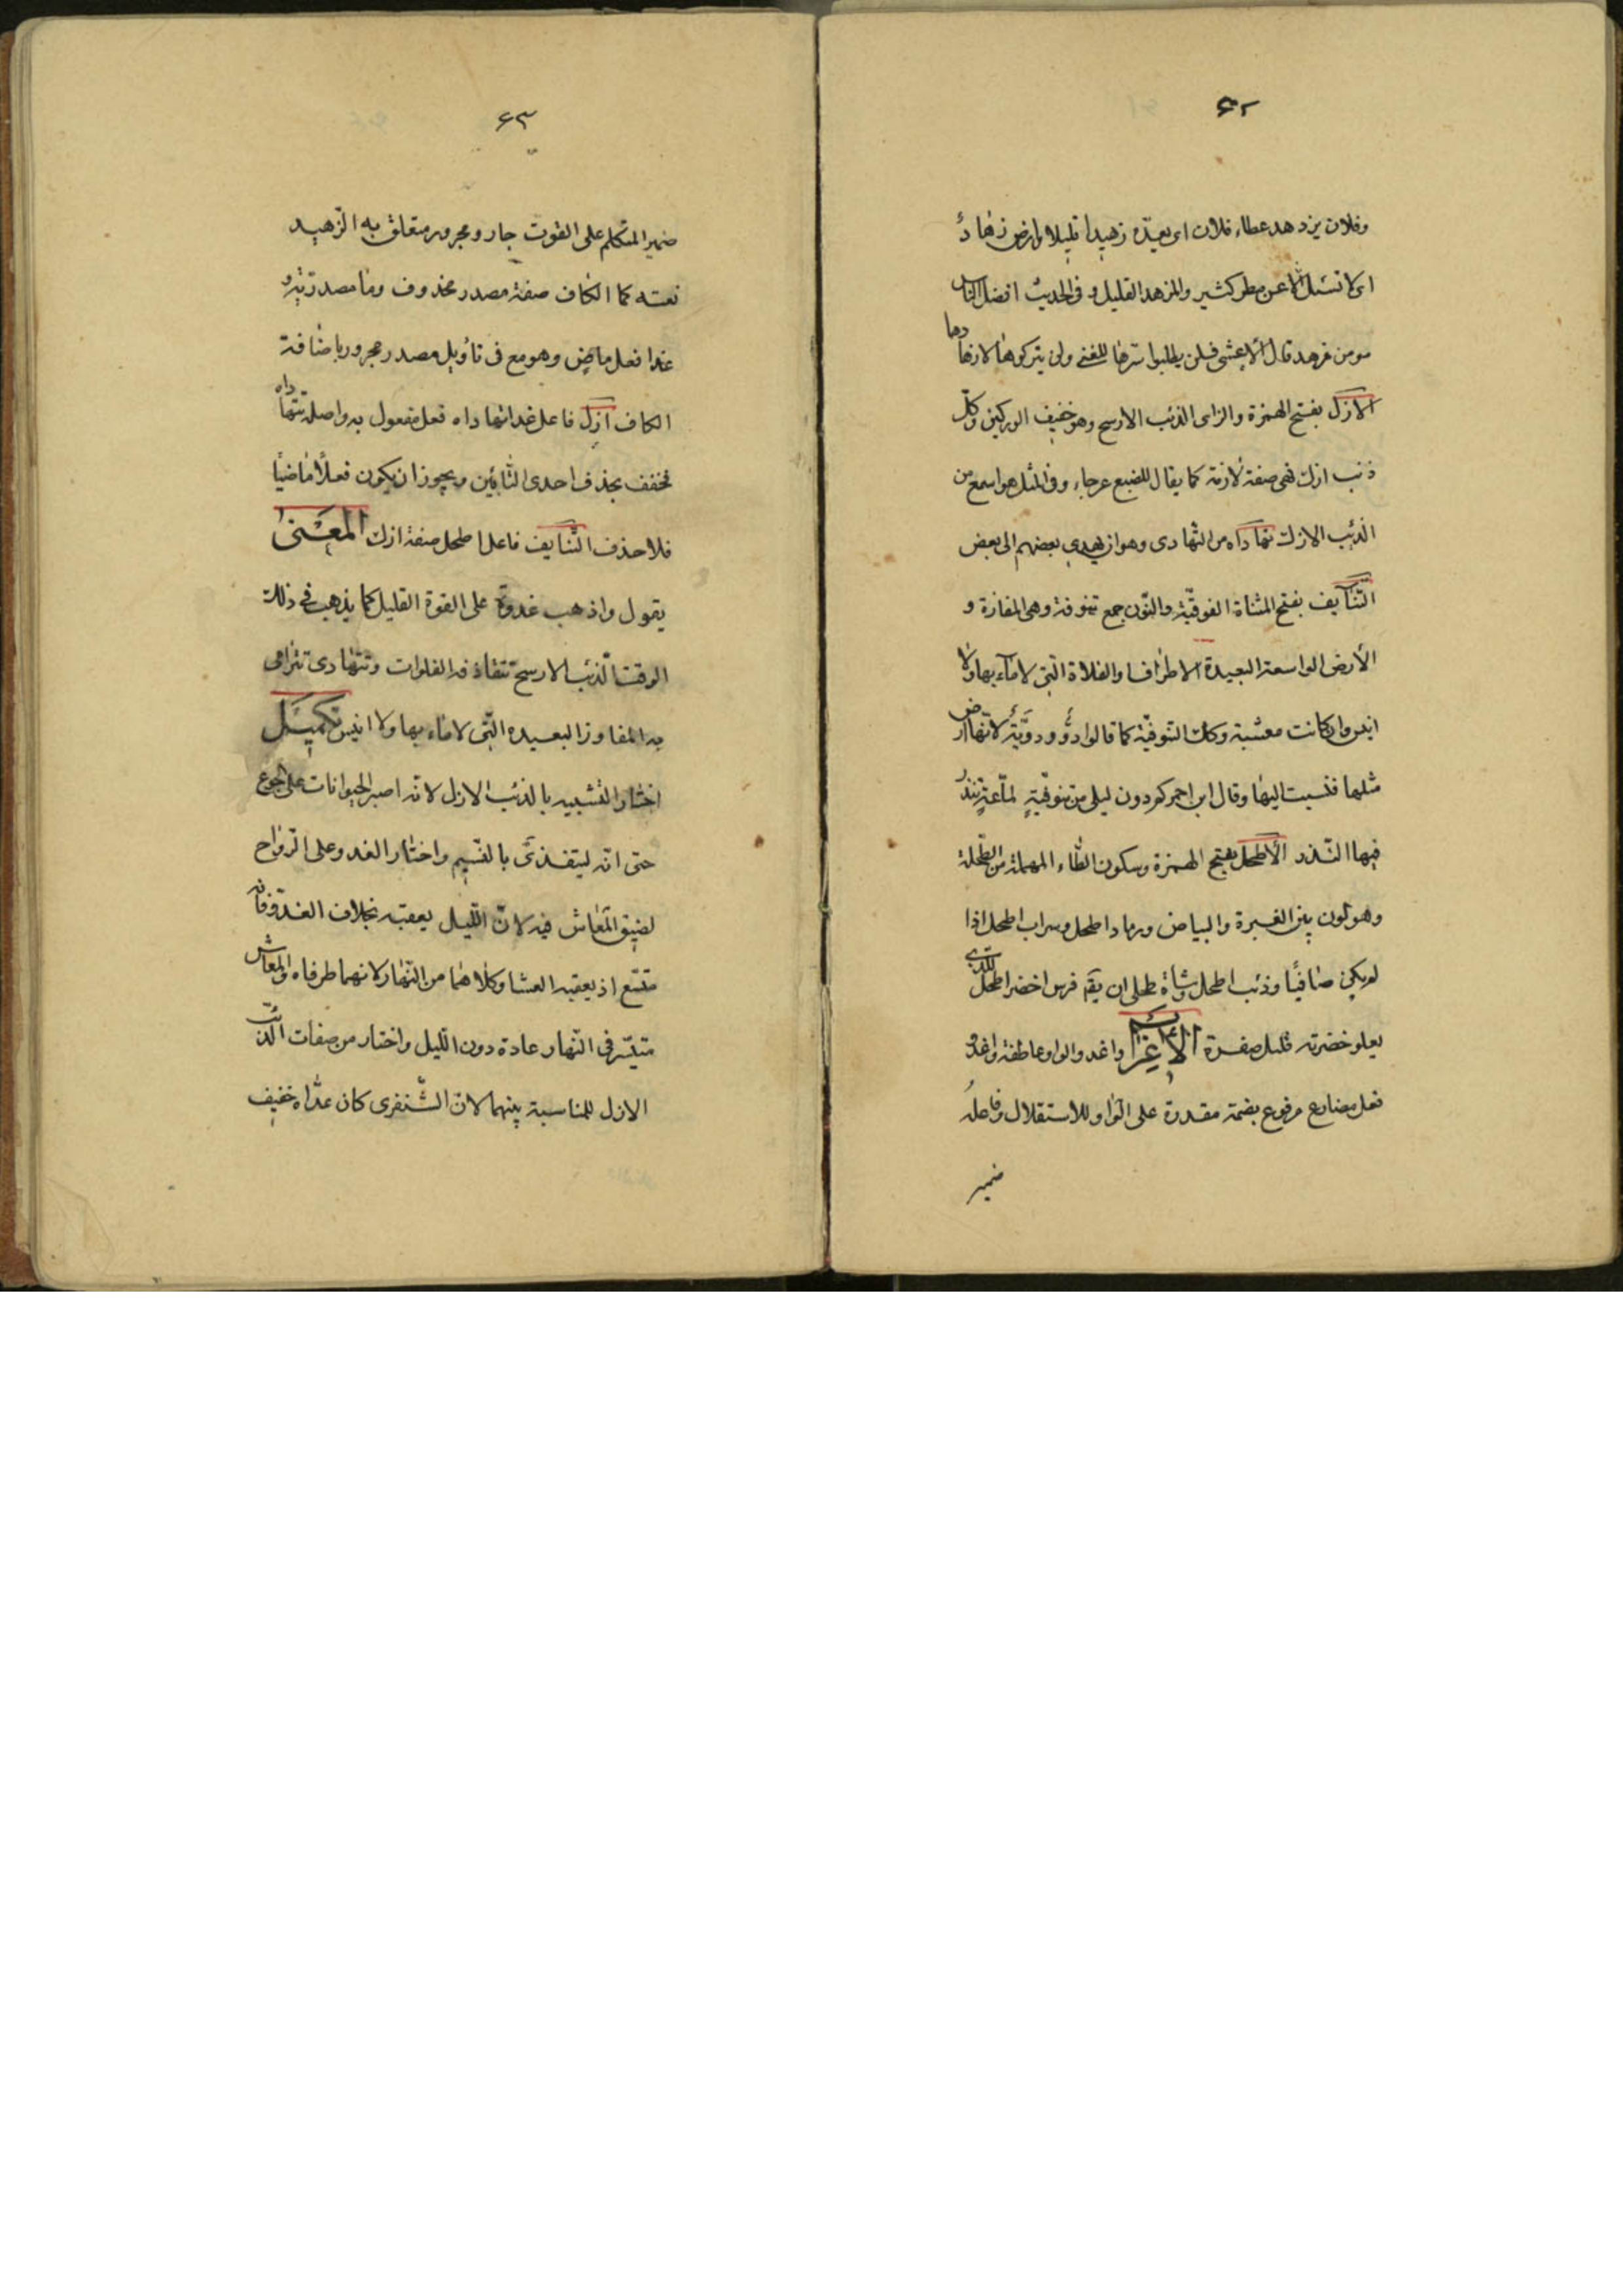 ۶۲
وفلان يزدهد عطاء فلان اى يعدّه زهيدا قليلا وارض زهاد
اى لا تسيل الا عن مطر كثير والمزهد القليل و فى الحديث افضل الناس
مومن مزهد قال الاعشى فلن يطلبوا سرها للغنى ولن يتركوها لازهادها
الازل بفتح الهمزة والزاى الذئب الارسح وهو خفيف الوركين وكل
ذئب ازل فهى صفة لازمة كما يقال للضبع عرجاء وفى المثل هو اسمع من
الذئب الازل تهاداه من التهادى وهو ان يهدى بعضهم الى بعض
التّنايف بفتح المثناة الفوقيّة والنّون جمع تنوفة وهى المفازة و
الأرض الواسعة البعيدة الاطراف او الفلاة الّتى لا ماء بها ولا
انيس وان كانت معشبة وكك التنوفيّة كما قالوا دوّ ودوّيّة لانّها ارض
مثلها فنسبت اليها وقال ابن احمر كم دون ليلى من تنوفيّةٍ لمّاعةٍ تنذر
فيها النّذر الأطحل بفتح الهمزة وسكون الطّاء المهملة من الطّحلة
وهو لون بين الغبرة والبياض ورماد اطحل وسراب اطحل اذا
لم يكن صافيًا وذئب اطحل وشاة طحلى ان يقم فرس اخضر اطحل للذى
يعلو خضرته قليل صفرة الأعراب واغدو الواو عاطفة واغدو
فعل مضارع مرفوع بضمة مقدرة على الواو للاستقلال وفاعله
ضمير
۶۳
ضمير المتكلم على القوت جار ومجرور متعلق به الزّهيد
نعته كما الكاف صفة مصدر محذوف وما مصدريّة و
غدا فعل ماض وهو مع فى تأويل مصدر مجرور باضافة
الكاف ازل فاعل غدا تهاداه فعل مفعول به واصله تتهاداه
فخفف بحذف احدى التائين ويجوز ان يكون فعلًا ماضيًا
فلا حذف التّنايف فاعل اطحل صفة ازل المعنى
يقول واذهب غدوة على القوة القليل كما يذهب فى ذلك
الوقت الذئب الارسح تتقاذفه الفلوات وتتهادى تترامى
به المفاوز البعيده الّتى لا ماء بها ولا انيس تكميل
اختار التشبيه بالذئب الازل لانه اصبر الحيوانات على الجوع
حتى انّه ليتغذّى بالنّسيم واختار الغدو على الرّواح
لضيق المعاش فيه لانّ اللّيل يعقبه بخلاف الغدوّ فانه
متّسع اذ يعقبه العشا وكلاهما من النّهار لانهما طرفاه والمعاش
متيسّر فى النّهار عادة دون اللّيل واختار من صفات الذئب
الازل للمناسبة بينهما لان الشّنفرى كان عدّاه خفيف